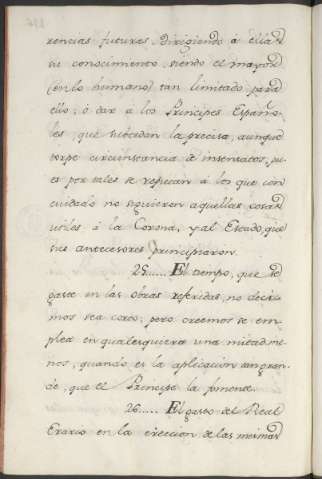 rencias futuras, dirigiendo á ellas
su conocimiento, siendo el mayor
(en lo humano) tan limitado para
ello; ó dar á los Principes Españo-
les, que subcedan la precisa, aunque
torpe circunstancia de insensatos, pu-
es por tales se reputan á los que con
cuidado no siguieren aquellas cosas
utiles á la Corona, y al Estado, que
sus antecesores principiaron.
25..... El tiempo, que se
gaste en las obras referidas, no deci-
mos sea corto; pero creemos se em-
plea en qualesquiera una mitad me-
nos, quando es la aplicacion tan gran-
de, que el Principe la fomente.
26..... El gasto del Real
Erario en la ereccion de las mismas